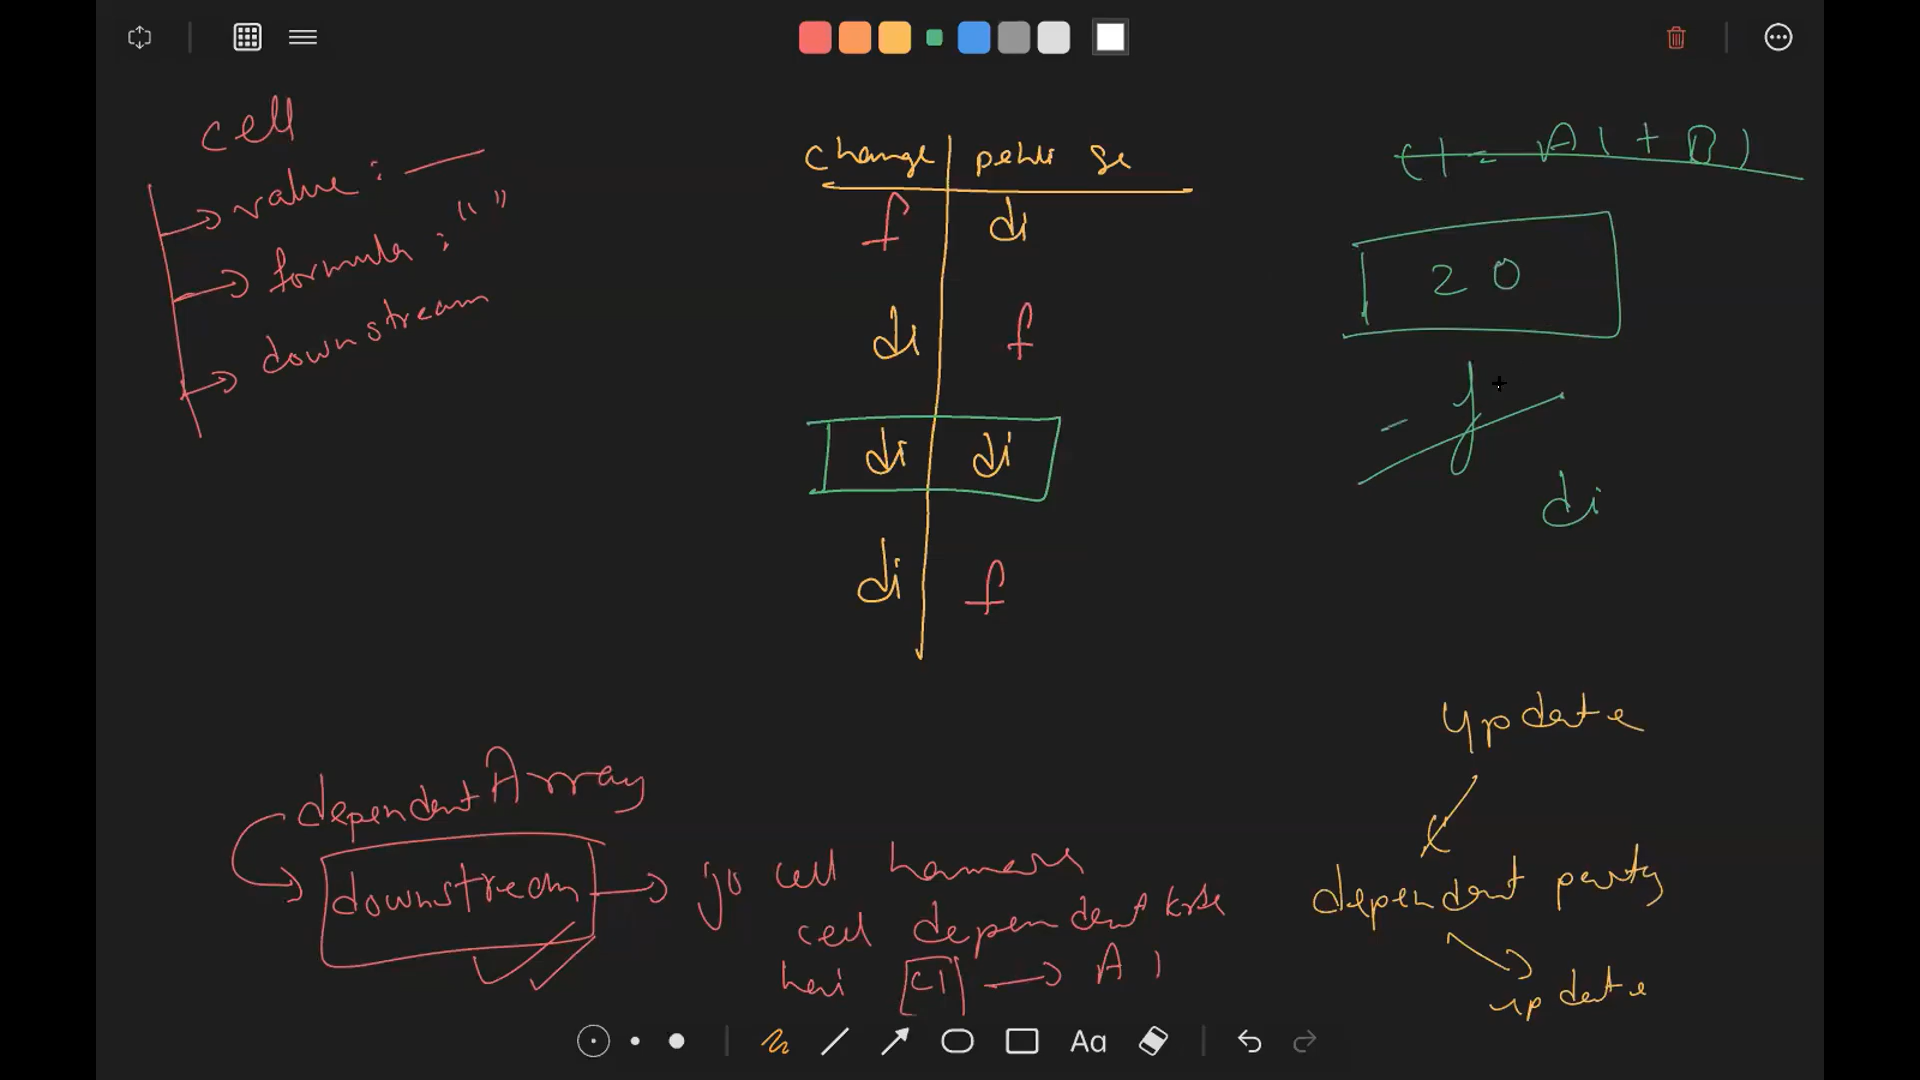 cell
value :
formula : " "
downstream
change pehli se
f di
di f
di di
di f
C1 = A1 + B1
20
= f
di
dependentArray
downstream
jo cell hamare
cell dependent krte
hai C1 A1
update
dependent party
update
Aa